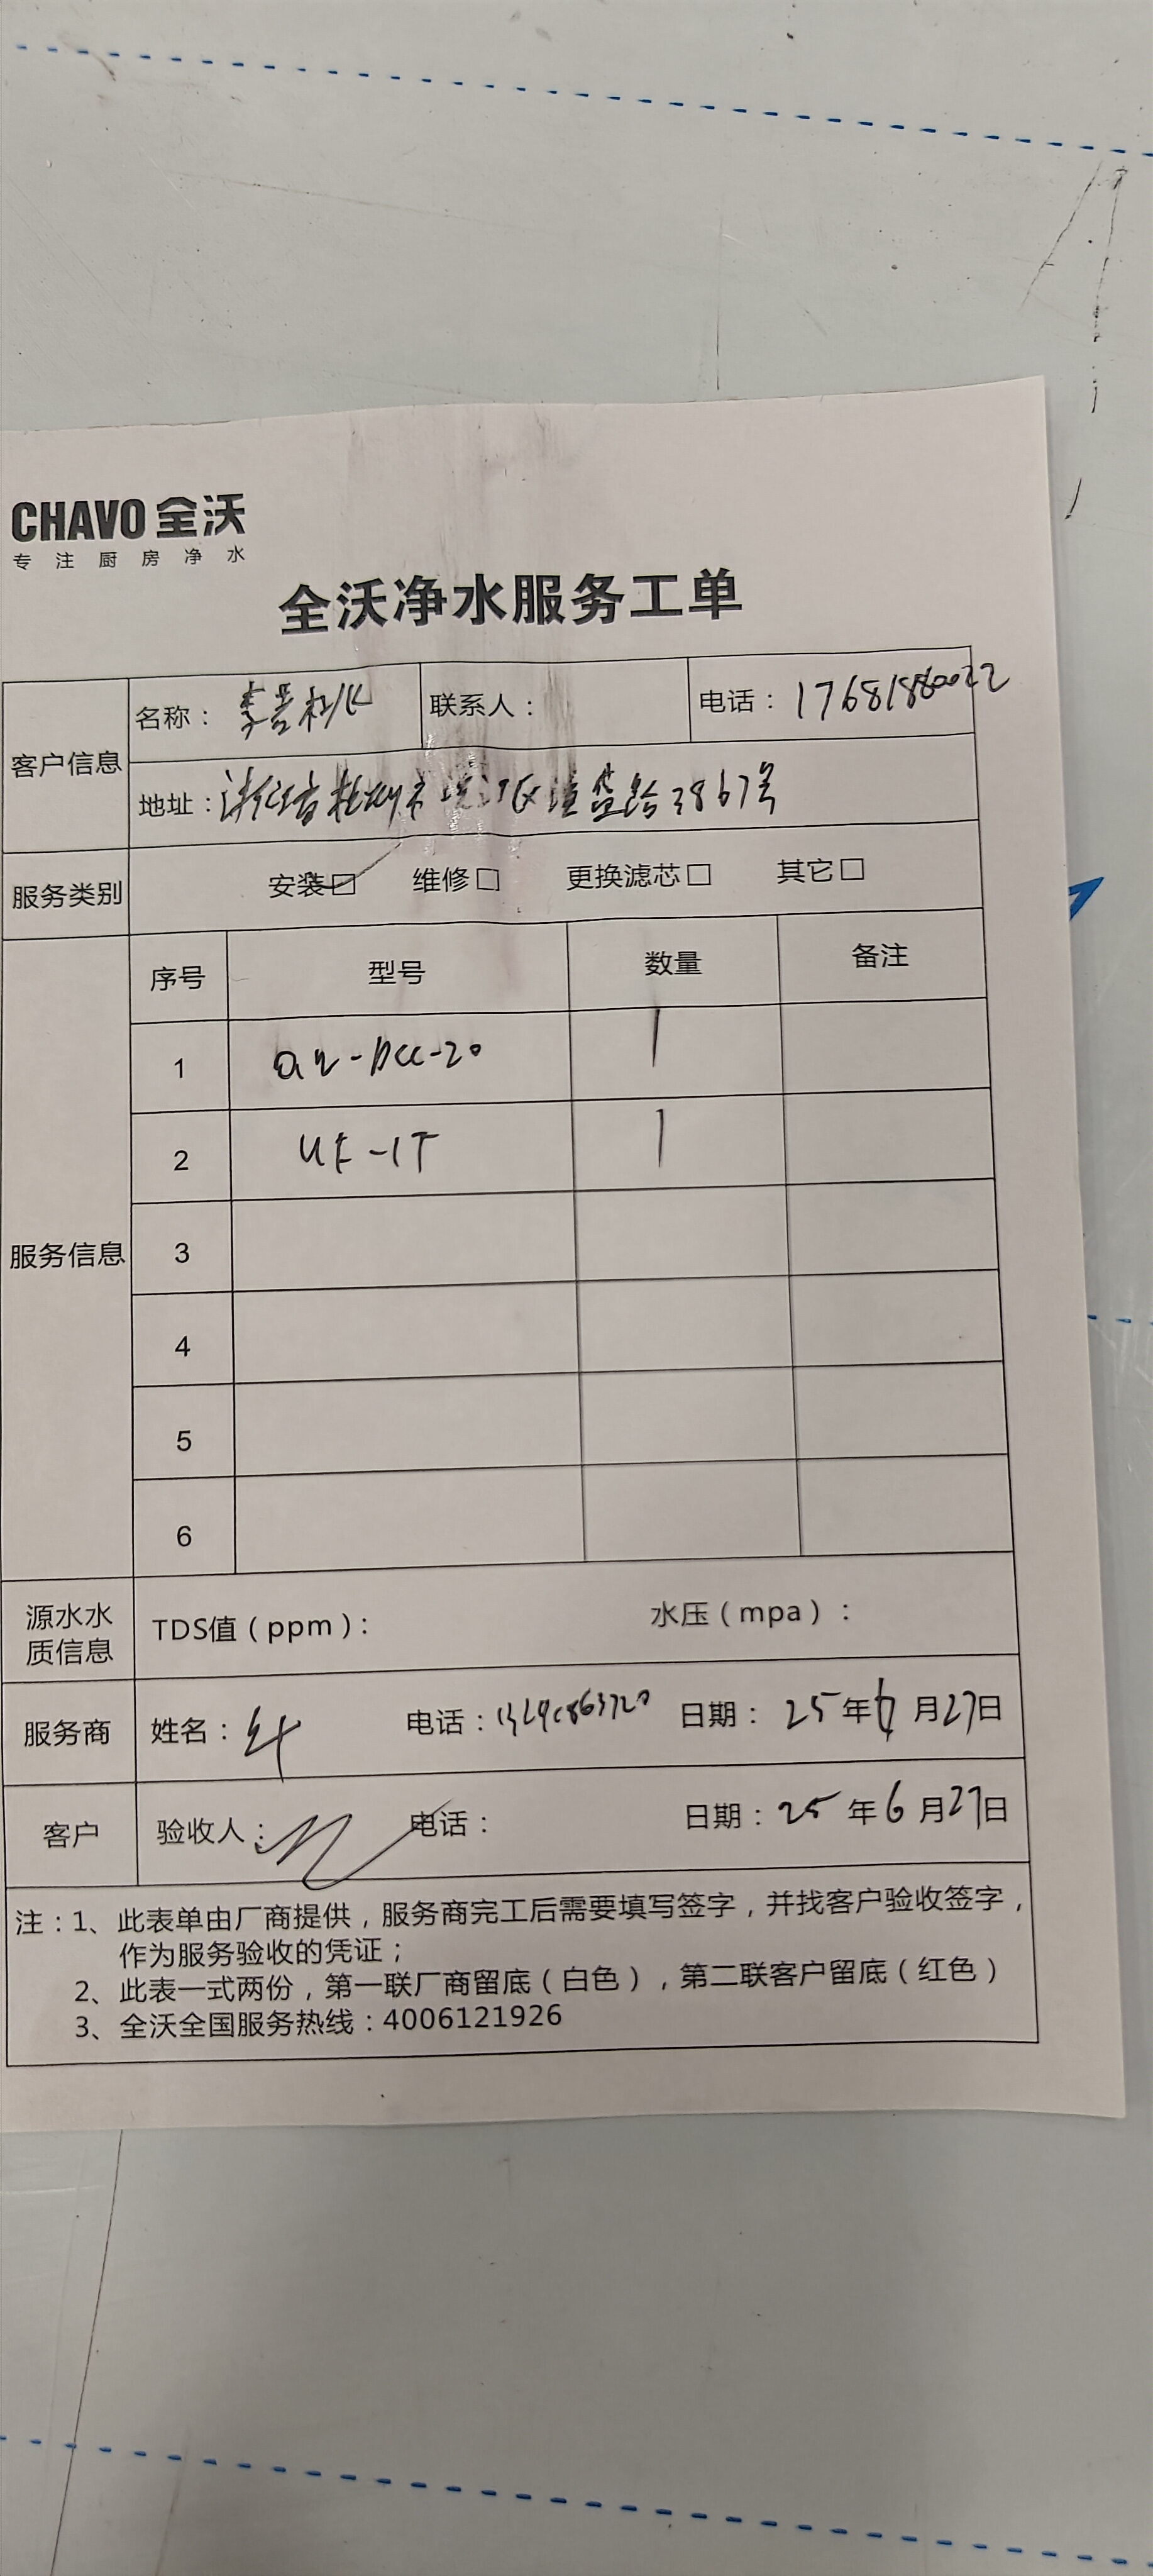 CHAVO 全沃
专注厨房净水
全沃净水服务工单
客户信息
名称： 联系人： 电话：17681880022
地址：浙江省杭州市滨江区 路3867号
服务类别 安装☑ 维修□ 更换滤芯□ 其它□
服务信息
序号 型号 数量 备注
1 1
2 UF-1T 1
3
4
5
6
源水水质信息 TDS值（ppm）： 水压（mpa）：
服务商 姓名： 电话： 日期：25年6月27日
客户 验收人： 电话： 日期：25年6月27日
注：1、此表单由厂商提供，服务商完工后需要填写签字，并找客户验收签字，
作为服务验收的凭证；
2、此表一式两份，第一联厂商留底（白色），第二联客户留底（红色）
3、全沃全国服务热线：4006121926